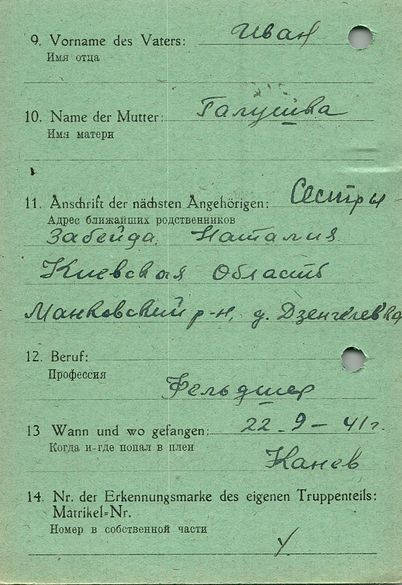 9. Vorname des Vaters: Иван
Имя отца
10. Name der Mutter: Галушка
Имя матери
11. Anschrift der nächsten Angehörigen: Сестры
Адрес ближайших родственников
Забейда, Наталия
Киевская Область
Манковский р-н, д. Дзенгелевка
12. Beruf:
Профессия
Фельдшер
13 Wann und wo gefangen: 22-9-41г.
Когда и где попал в плен
Канев
14. Nr. der Erkennungsmarke des eigenen Truppenteils:
Matrikel-Nr.
Номер в собственной части